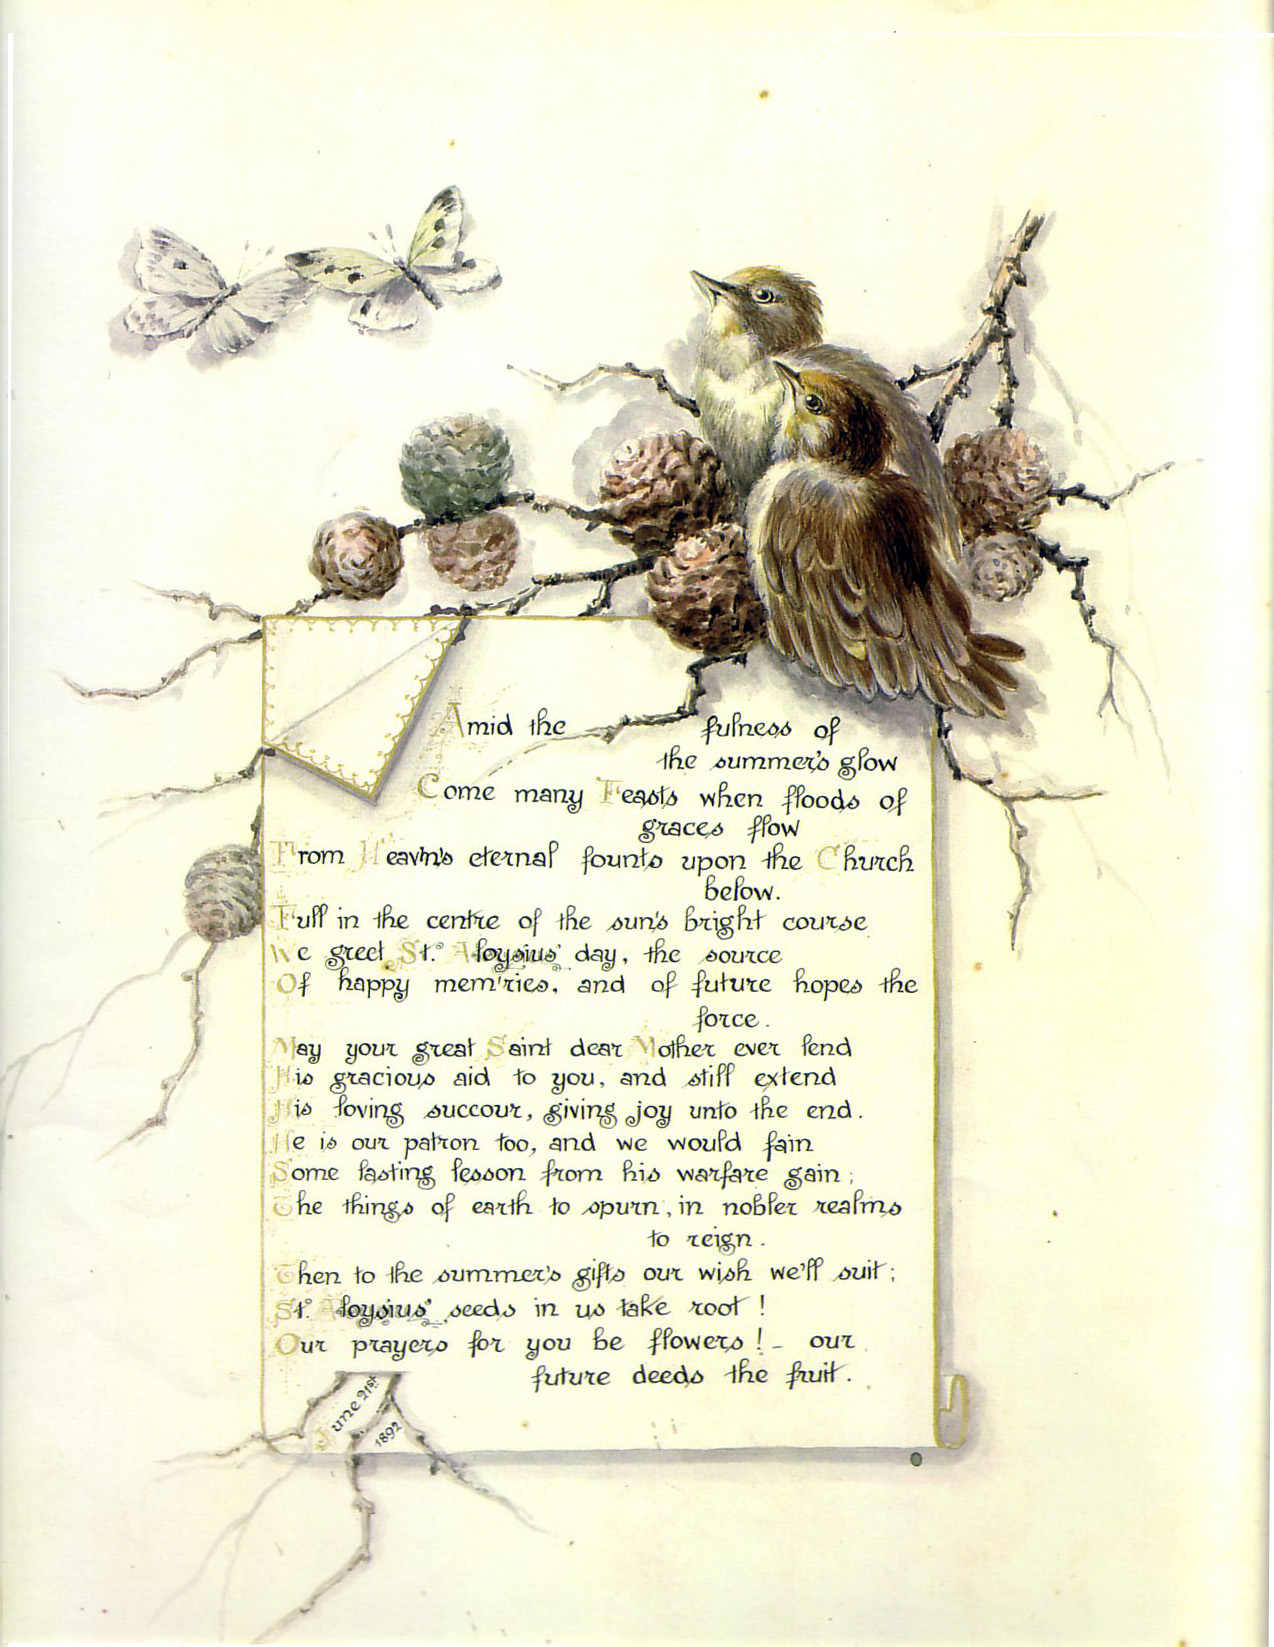 Amid the fulness of
the summer's glow
Come many Feasts when floods of
graces flow
From Heav'n's eternal founts upon the Church
below.
Full in the centre of the sun's bright course
We greet St. Aloysius' day, the source
Of happy mem'ries, and of future hopes the
force.
May your great Saint dear Mother ever lend
His gracious aid to you, and still extend
His loving succour, giving joy unto the end.
He is our patron too, and we would fain
Some lasting lesson from his warfare gain;
The things of earth to spurn, in nobler realms
to reign.
Then to the summer's gifts our wish we'll suit;
St. Aloysius' seeds in us take root!
Our prayers for you be flowers! - our
future deeds the fruit.
June 21st
1892